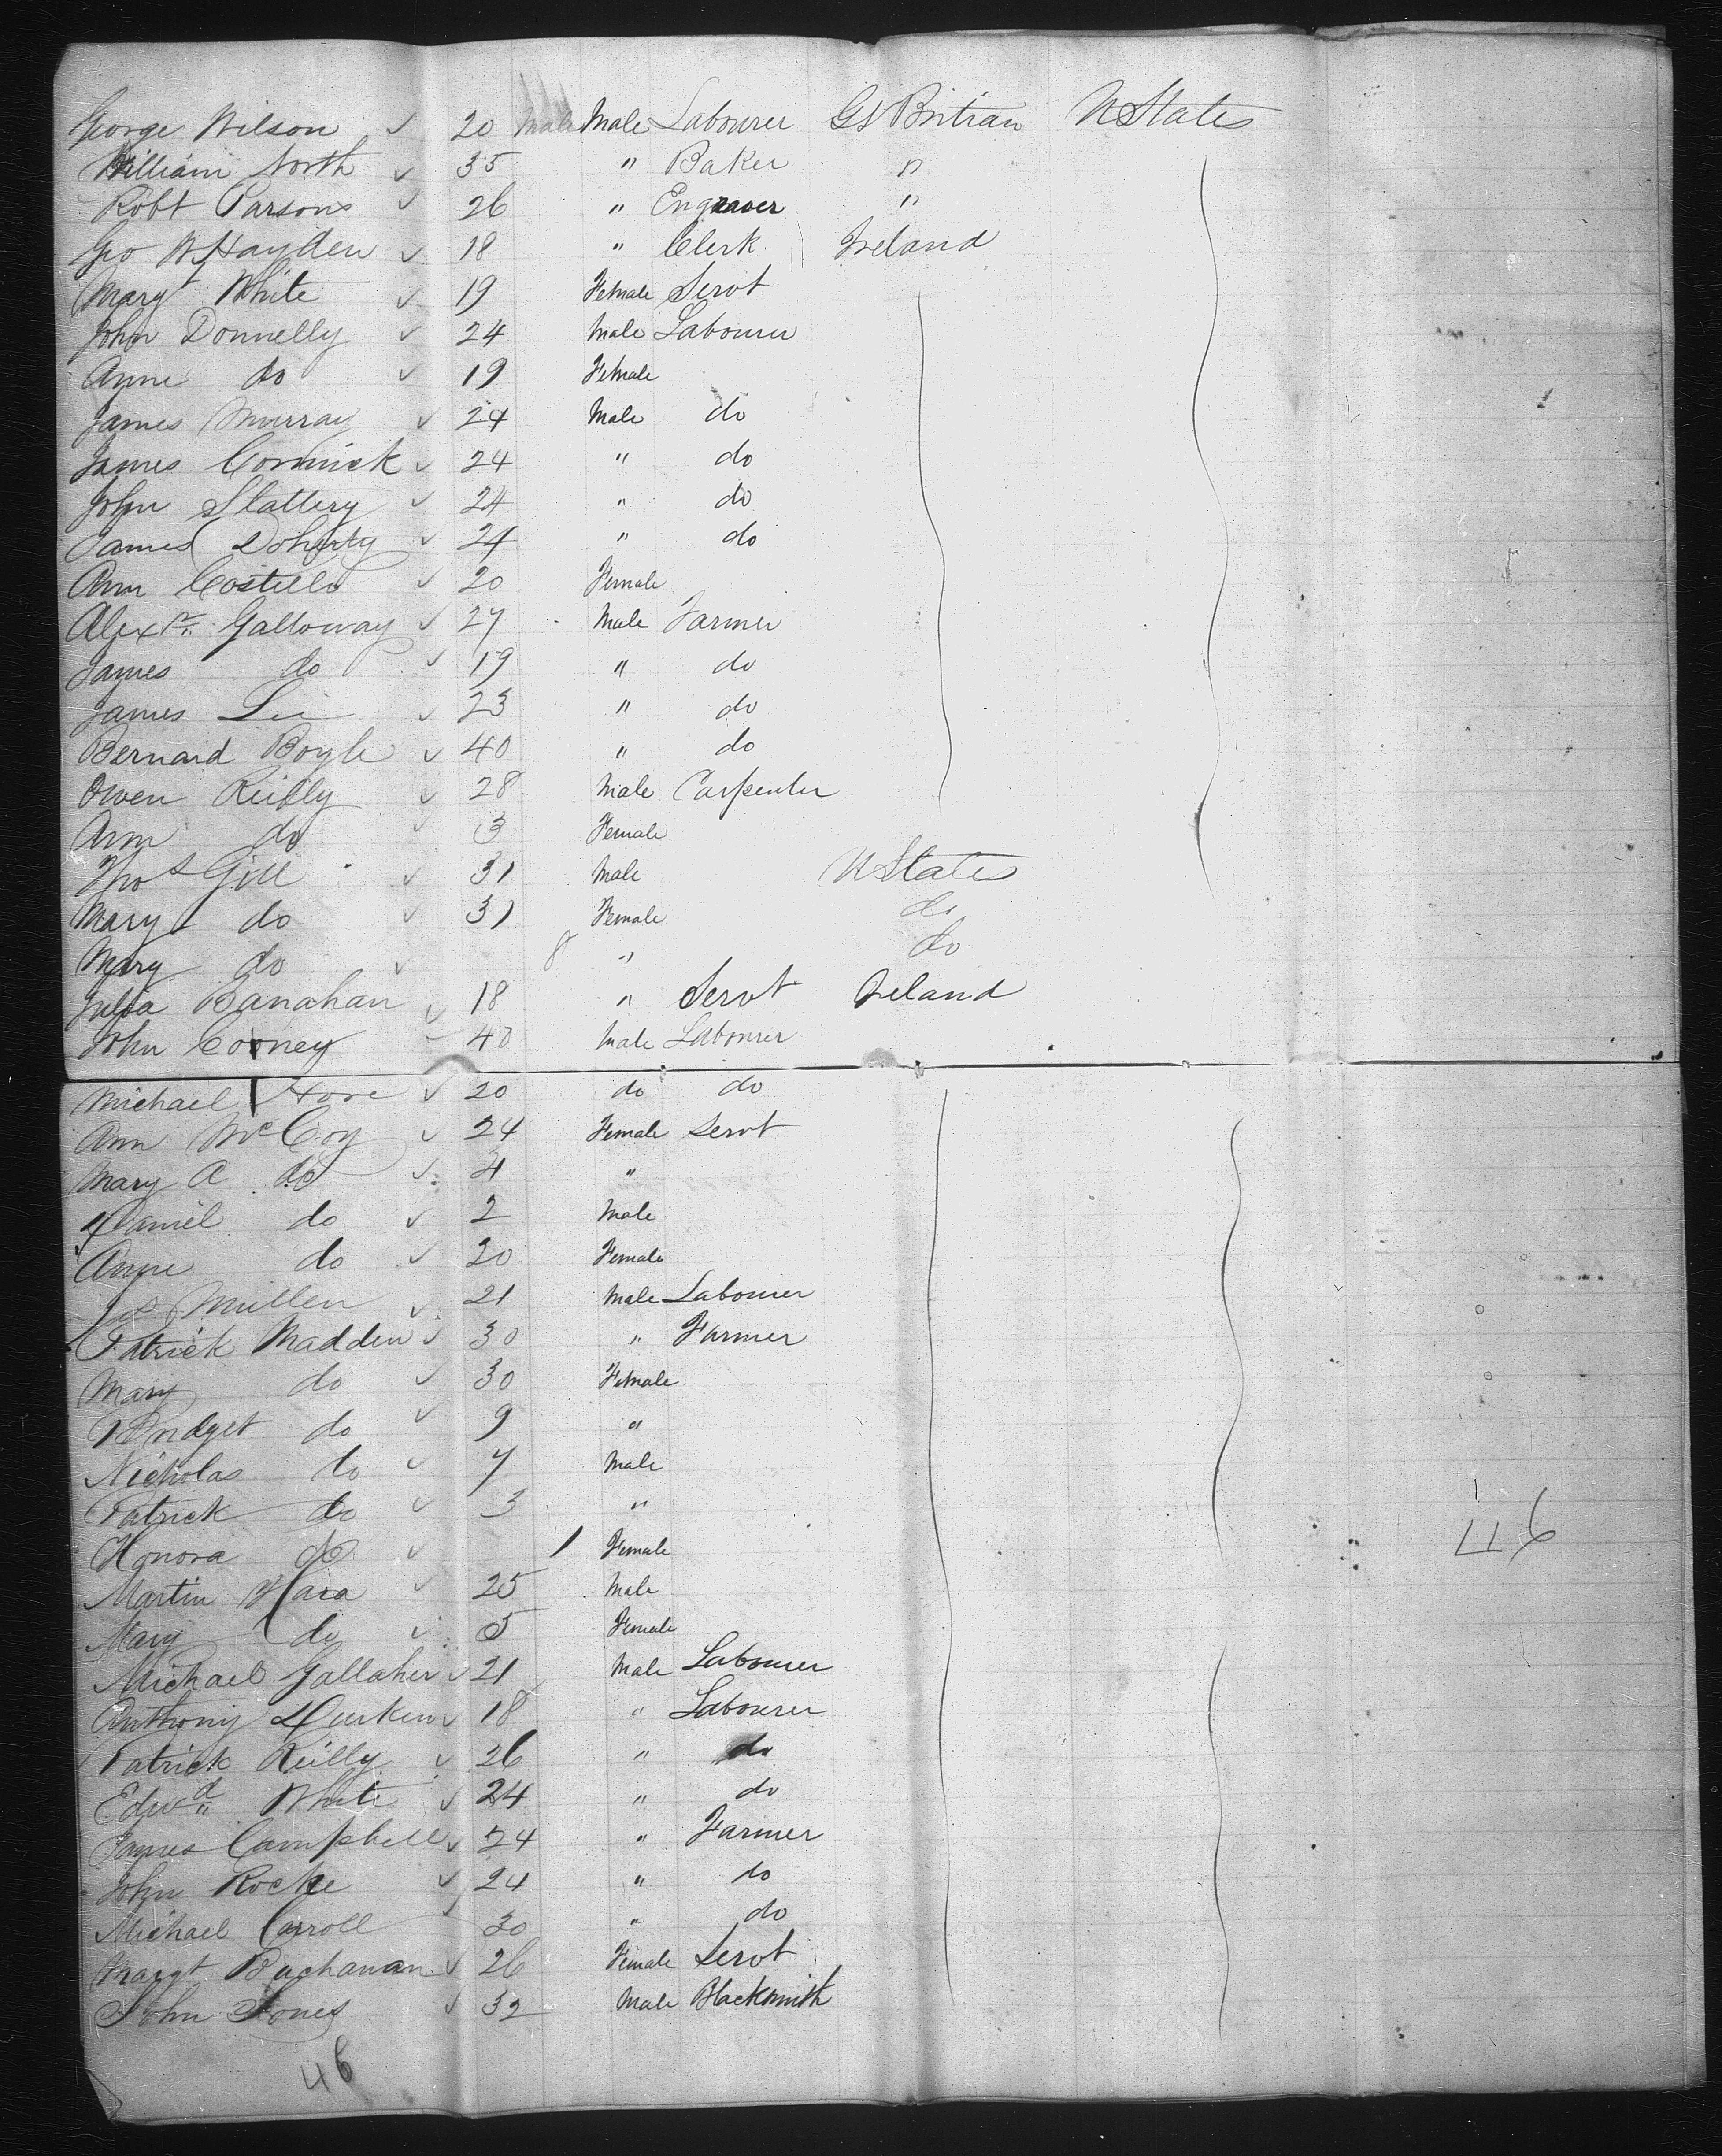 George Wilson ✓ 20 Male Male Labourer Gt Britian U States
William North ✓ 35 " Baker "
Robt Parsons ✓ 26 " Engraver "
Geo W Hayden ✓ 18 " Clerk Ireland
Margt White ✓ 19 Female Servt
John Donnelly ✓ 24 Male Labourer
Anne do ✓ 19 Female
James Murray ✓ 24 Male do
James Cormick ✓ 24 " do
John Slattery ✓ 24 " do
James Doherty ✓ 24 " do
Ann Costello ✓ 20 Female
Alexr. Galloway ✓ 27 Male Farmer
James do ✓ 19 " do
James Lee ✓ 23 " do
Bernard Boyle ✓ 40 " do
Owen Reilly ✓ 28 Male Carpenter
Ann do ✓ 3 Female
Thos Gill ✓ 31 Male U States
Mary do ✓ 31 Female do
Mary do ✓ 8 " do
Julia Banahan ✓ 18 " Servt Ireland
John Cooney 40 Male Labourer
Michael ✓ 20 do do
Ann McCoy ✓ 24 Female Servt
Mary A do ✓ 4 "
Daniel do ✓ 2 Male
Anne do ✓ 20 Female
Jas Mullen ✓ 21 Male Labourer
Patrick Madden ✓ 30 " Farmer
Mary do ✓ 30 Female
Bridget do ✓ 9 "
Nicholas do ✓ 7 Male
Patrick do ✓ 3 "
Honora do ✓ 1 Female
46
Martin Hara ✓ 25 Male
Mary do ✓ 5 Female
Michael Gallaher ✓ 21 Male Labourer
Anthony Durken ✓ 18 " Labourer
Patrick Reilly ✓ 26 " do
Edwd White ✓ 24 " do
James Campbell ✓ 24 " Farmer
John Roche ✓ 24 " do
Michael Carroll ✓ 30 " do
Margt Buchanan ✓ 26 Female Servt
John Jones ✓ 32 Male Blacksmith
46